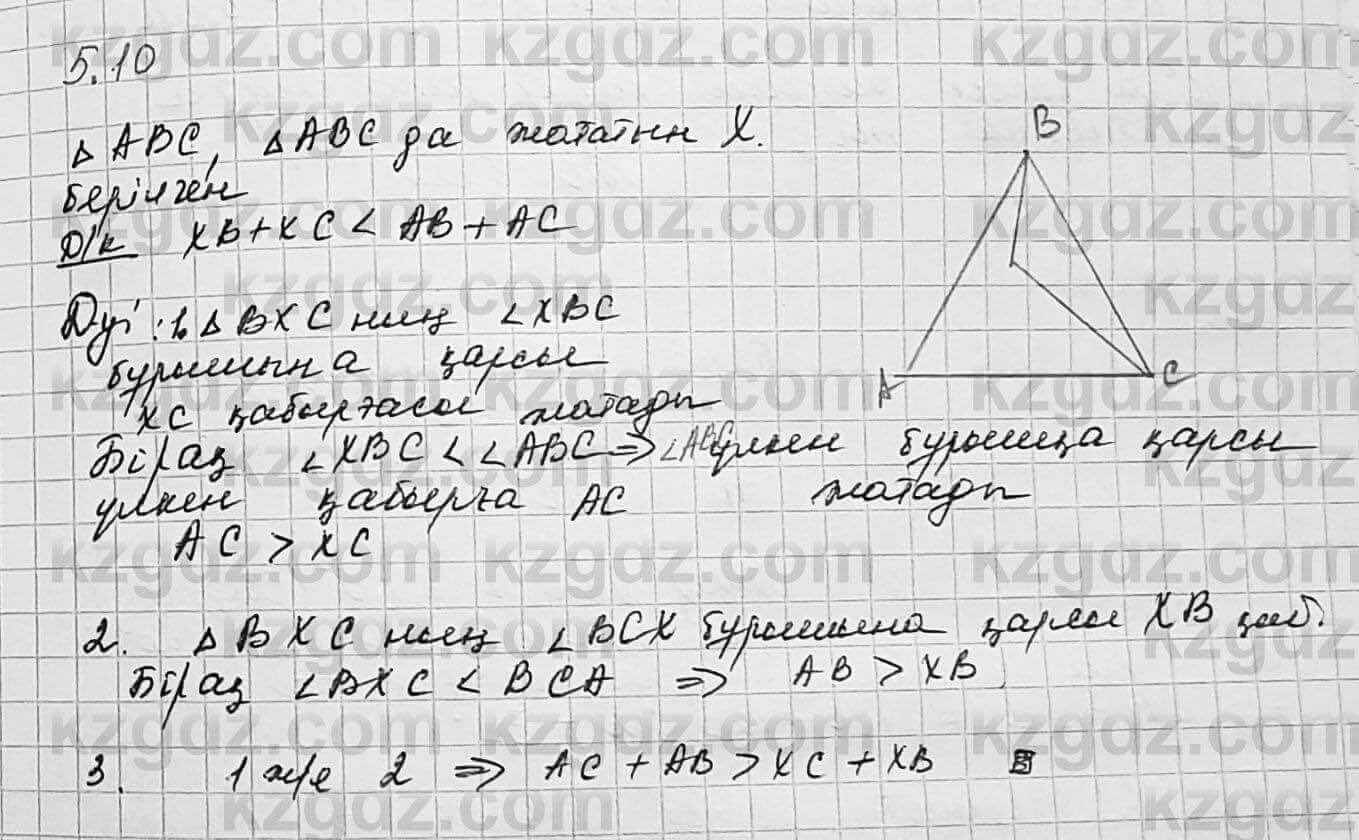 5.10
△ABC, △ABC да жататын X.
берілген
Д/к XB+XC < AB+AC
B
A
C
Дәі: 1. △BXC ның ∠XBC
бұрышына қарсы
XC қабырғасы жатады
Бірақ ∠XBC < ∠ABC ⇒ ∠ABC үлкен бұрышқа қарсы
үлкен қабырға AC жатады
AC > XC
2. △BXC ның ∠BCX бұрышына қарсы XB қаб.
Бірақ ∠BXC < BCA ⇒ AB > XB.
3. 1 ж/е 2 ⇒ AC + AB > XC + XB
kzgdz.com